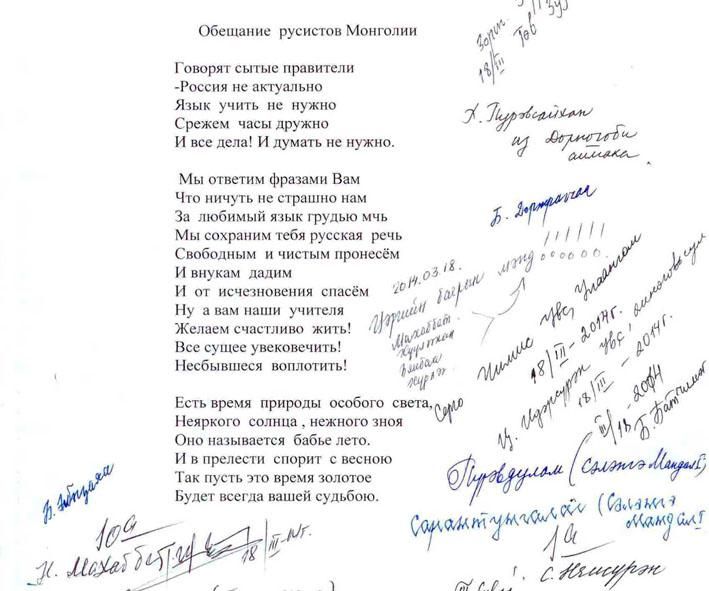 Обещание русистов Монголии
Говорят сытые правители
-Россия не актуально
Язык учить не нужно
Срежем часы дружно
И все дела! И думать не нужно.
Мы ответим фразами Вам
Что ничуть не страшно нам
За любимый язык грудью мчь
Мы сохраним тебя русская речь
Свободным и чистым пронесём
И внукам дадим
И от исчезновения спасём
Ну а вам наши учителя
Желаем счастливо жить!
Все сущее увековечить!
Несбывшееся воплотить!
Есть время природы особого света,
Неяркого солнца , нежного зноя
Оно называется бабье лето.
И в прелести спорит с весною
Так пусть это время золотое
Будет всегда вашей судьбою.
18/III
Х. Пүрэвсайхан
из Дорногоби
аймака.
2014.03.18.
мэнд
Махаббат
18/III - 2014г.
18/III - 2014г.
III/18 - 2014
Пүрэвдулам (Сэлэнгэ Мандал I)
Сарантунгалаг (Сэлэнгэ
Мандал I
Н. Махаббат
18/III-14г.